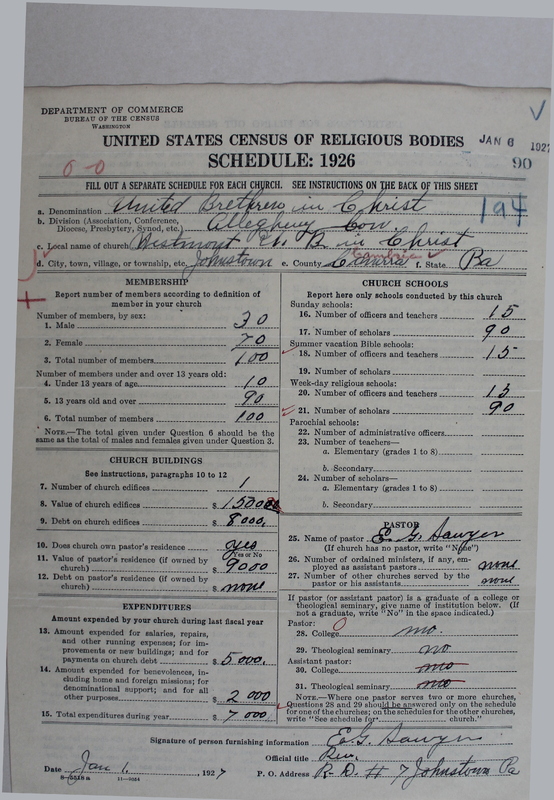 DEPARTMENT OF COMMERCE
BUREAU OF THE CENSUS
WASHINGTON
V
UNITED STATES CENSUS OF RELIGIOUS BODIES
JAN 6 1927
SCHEDULE: 1926
90
0-0
FILL OUT A SEPARATE SCHEDULE FOR EACH CHURCH. SEE INSTRUCTIONS ON THE BACK OF THIS SHEET
194
a. Denomination United Brethren in Christ
b. Division (Association, Conference, Diocese, Presbytery, Synod, etc.) Allegheny Con
c. Local name of church Westmont U. B. in Christ
d. City, town, village, or township, etc. Johnstown e. County Cambria f. State Pa
MEMBERSHIP
Report number of members according to definition of
member in your church
Number of members, by sex:
1. Male 30
2. Female 70
3. Total number of members 100
Number of members under and over 13 years old:
4. Under 13 years of age 10
5. 13 years old and over 90
6. Total number of members 100
NOTE.—The total given under Question 6 should be
same as the total of males and females given under Question 3.
CHURCH BUILDINGS
See instructions, paragraphs 10 to 12
7. Number of church edifices 1
8. Value of church edifices $ 15000
9. Debt on church edifices $ 8000.
10. Does church own pastor's residence yes
Yes or No
11. Value of pastor's residence (if owned by
church) $ 9000
12. Debt on pastor's residence (if owned by
church) $ none
EXPENDITURES
Amount expended by your church during last fiscal year
13. Amount expended for salaries, repairs,
and other running expenses; for im-
provements or new building; and for
payments on church debt $ 5000.
14. Amount expended for benevolences, in-
cluding home and foreign missions; for
denominational support; and for all
other purposes $ 2000
15. Total expenditures during year $ 7000.
CHURCH SCHOOLS
Report here only schools conducted by this church
Sunday schools:
16. Number of officers and teachers 15
17. Number of scholars 90
Summer vacation Bible schools:
18. Number of officers and teachers 15
19. Number of scholars
Week-day religious schools:
20. Number of officers and teachers 15
21. Number of scholars 90
Parochial schools:
22. Number of administrative officers
23. Number of teachers—
a. Elementary (grades 1 to 8)
b. Secondary
24. Number of scholars—
a. Elementary (grades 1 to 8)
b. Secondary
PASTOR
25. Name of pastor E. G. Sawyer
(If church has no pastor, write "None")
26. Number of ordained ministers, if any, em-
ployed as assistant pastors none
27. Number of other churches served by the
pastor or his assistants none
If pastor (or assistant pastor) is a graduate of a college or
theological seminary, give name of institution below. (If
not a graduate, write "No" in the space indicated.)
Pastor:
28. College no.
29. Theological seminary no
Assistant pastor:
30. College no
31. Theological seminary no
NOTE.—Where one pastor serves two or more churches,
Questions 28 and 29 should be answered only on the schedule
for one of the churches; on the schedules for the other churches,
write "See schedule for church."
Signature of person furnishing information E. G. Sawyer
Official title Rev.
Date Jan 1. 1927 P. O. Address R. D. # 7 Johnstown Pa
11—9864